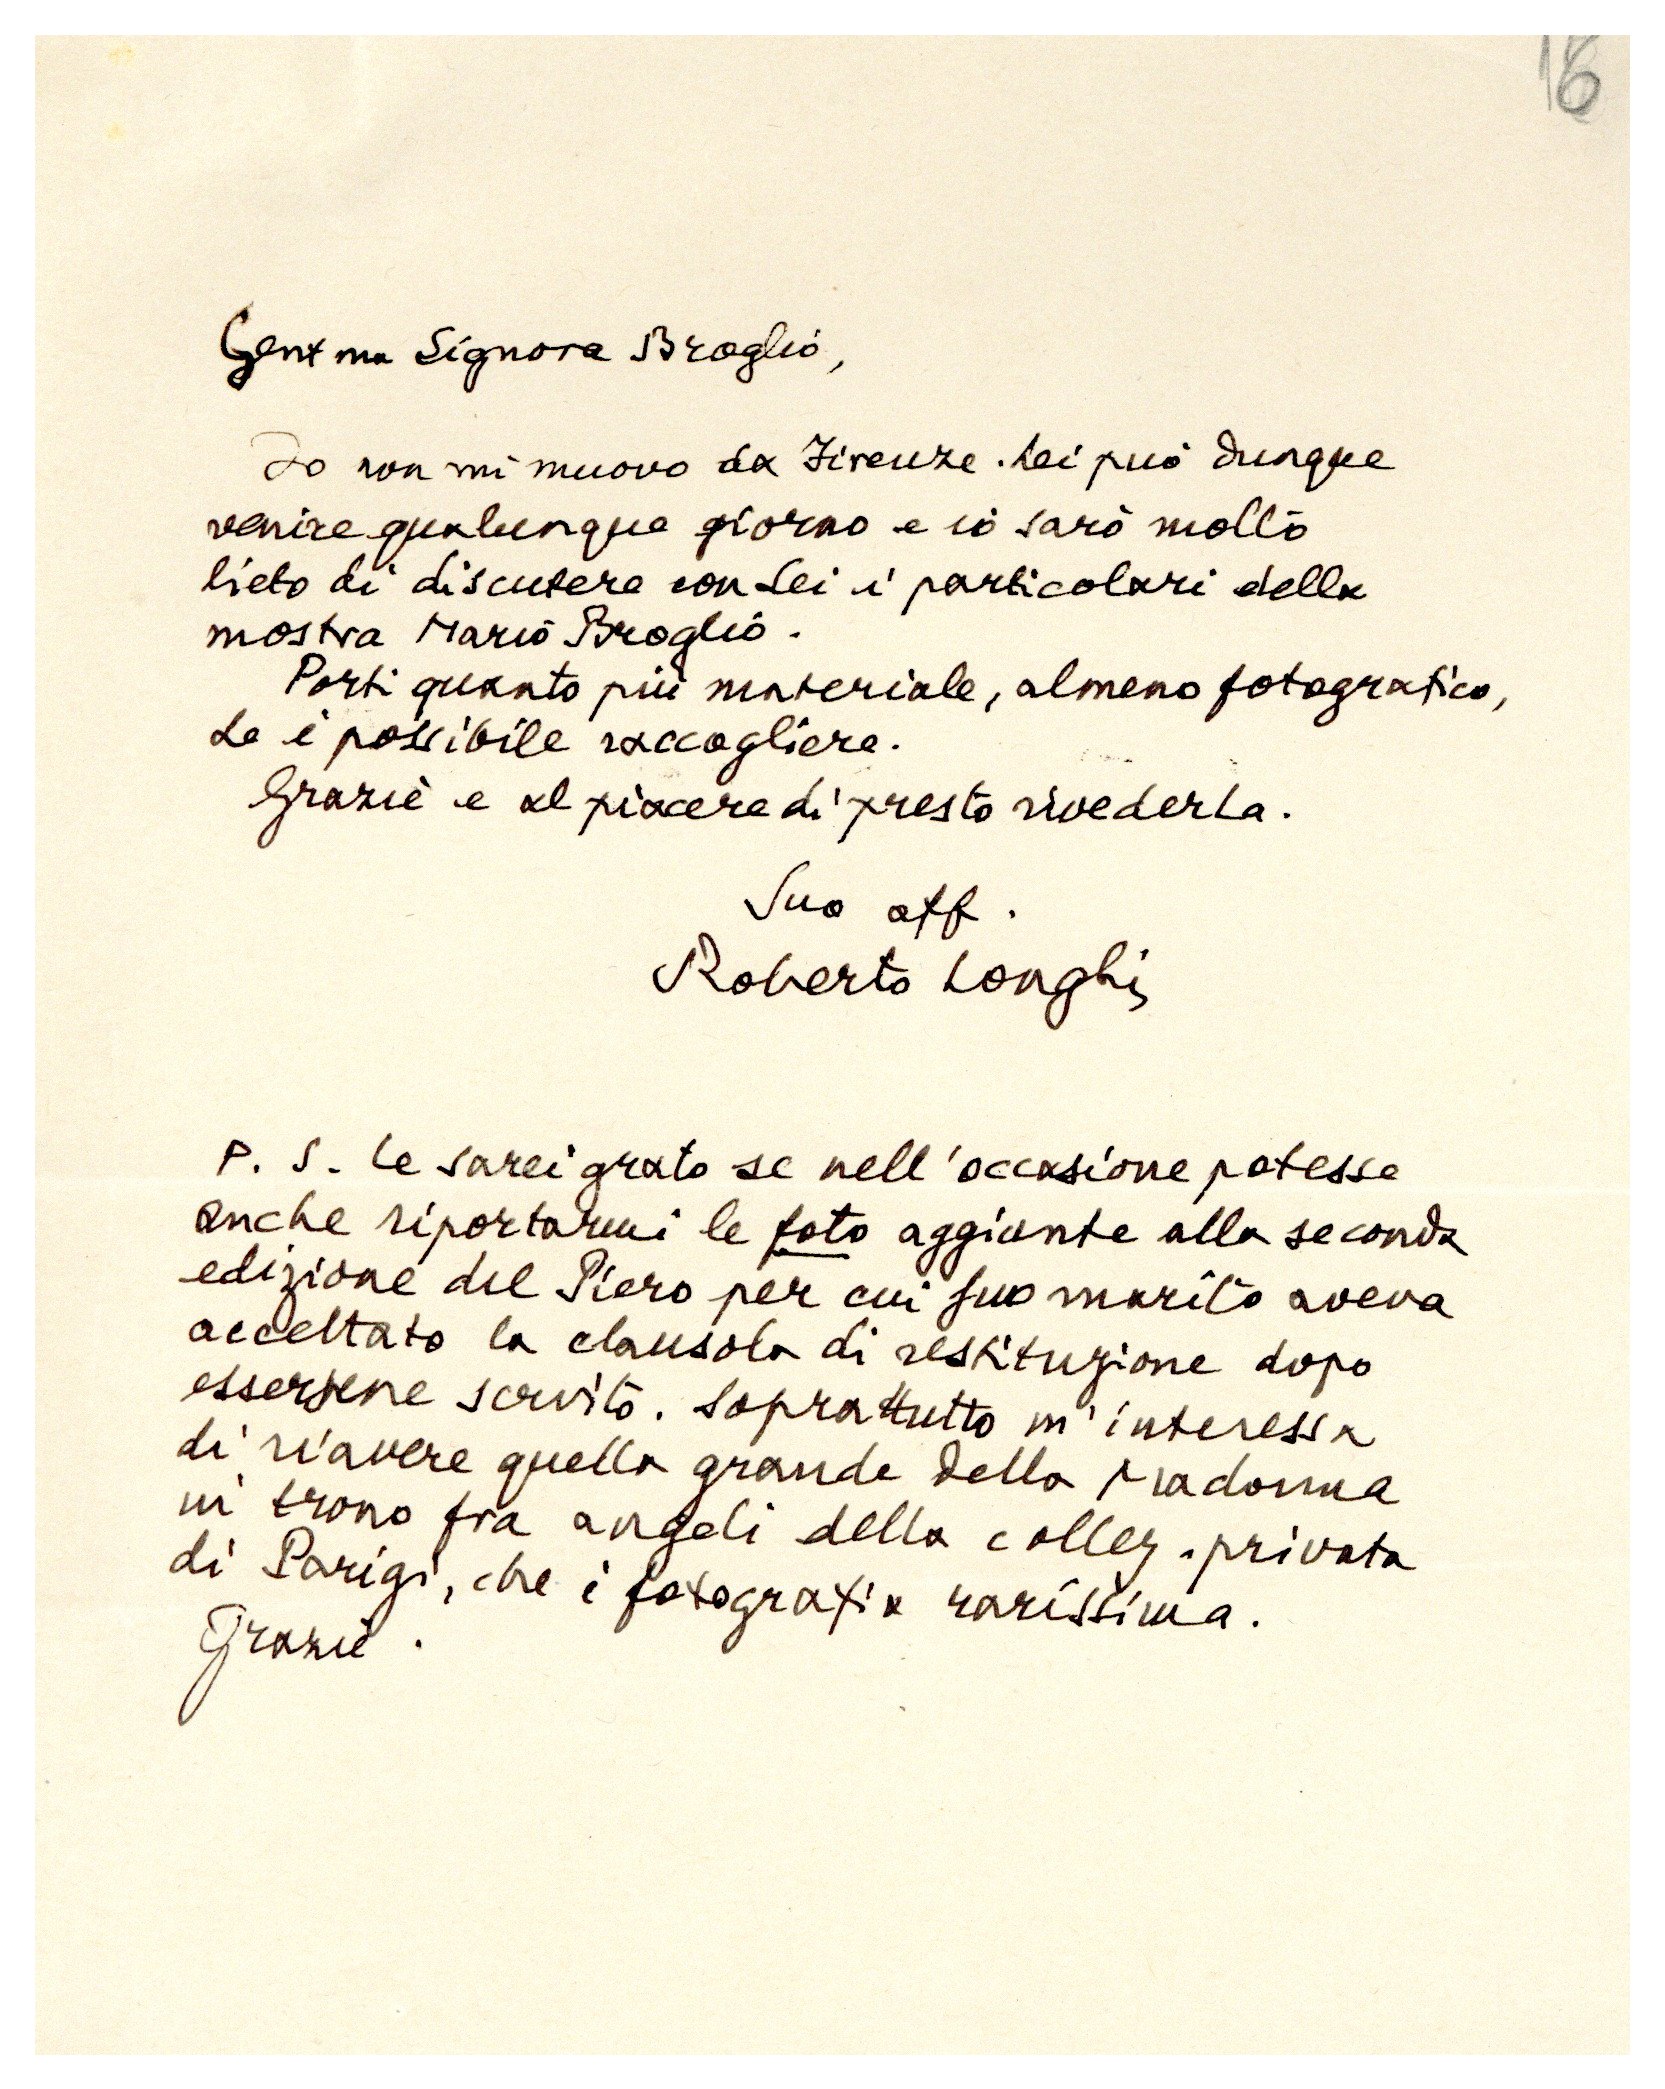 16
Gent ma Signora Broglio,
Io non mi muovo da Firenze. Lei può dunque
venire qualunque giorno e io sarò molto
lieto di discutere con Lei i particolari della
mostra Mario Broglio.
Porti quanto più materiale, almeno fotografico,
Le è possibile raccogliere.
Grazie e al piacere di presto rivederLa.
Suo aff.
Roberto Longhi
P. S. Le sarei grato se nell'occasione potesse
anche riportarmi le foto aggiunte alla seconda
edizione del Piero per cui Suo marito aveva
accettato la clausola di restituzione dopo
essersene servito. Soprattutto m'interessa
di riavere quella grande della Madonna
in trono fra angeli della collez. privata
di Parigi, che è fotografia rarissima.
Grazie.